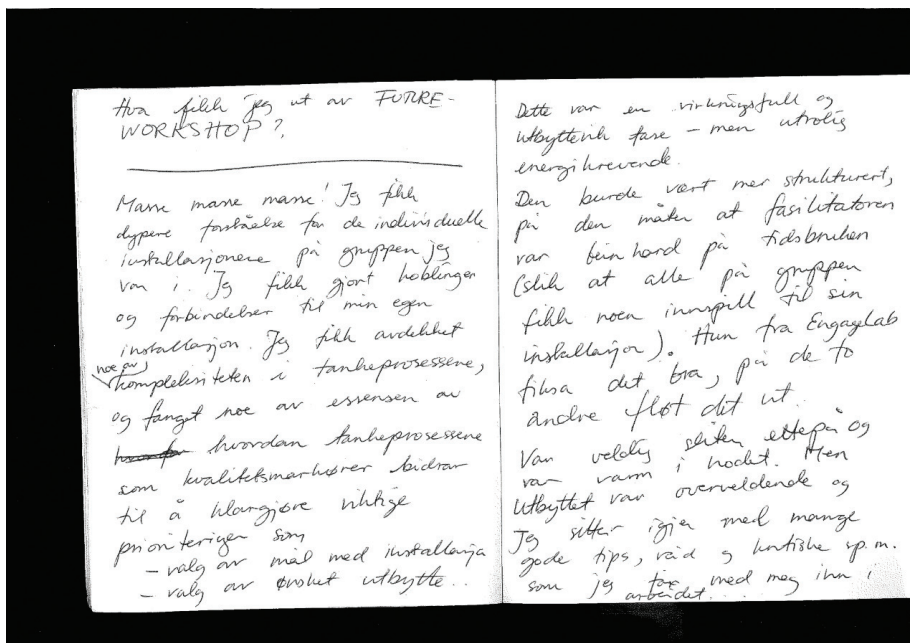 Hva fikk jeg ut av FUTURE-
WORKSHOP?
Masse masse masse! Jeg fikk
dypere forståelse for de individuelle
installasjonene på gruppen jeg
var i. Jeg fikk gjort koblinger
og forbindelser til min egen
installasjon. Jeg fikk avdekket
noe av
kompleksiteten i tankeprosessene,
og fanget noe av essensen av
hvordan tankeprosessene
som kvalitetsmarkører bidrar
til å klargjøre viktige
prioriteringer som
- valg av mål med installasja
- valg av ønsket utbytte...
Dette var en virkningsfull og
utbytterik fase - men utrolig
energikrevende.
Den burde vært mer strukturert,
på den måten at fasilitatoren
var beinhard på tidsbruken
(slik at alle på gruppen
fikk noen innspill til sin
installasjon). Hun fra EngageLab
fiksa det bra, på de to
andre fløt det ut.
Var veldig sliten etterpå og
var varm i hodet. Men
Utbyttet var overveldende og
Jeg sitter igjen med mange
gode tips, råd og kritiske sp.m.
som jeg tar med meg inn i
arbeidet...